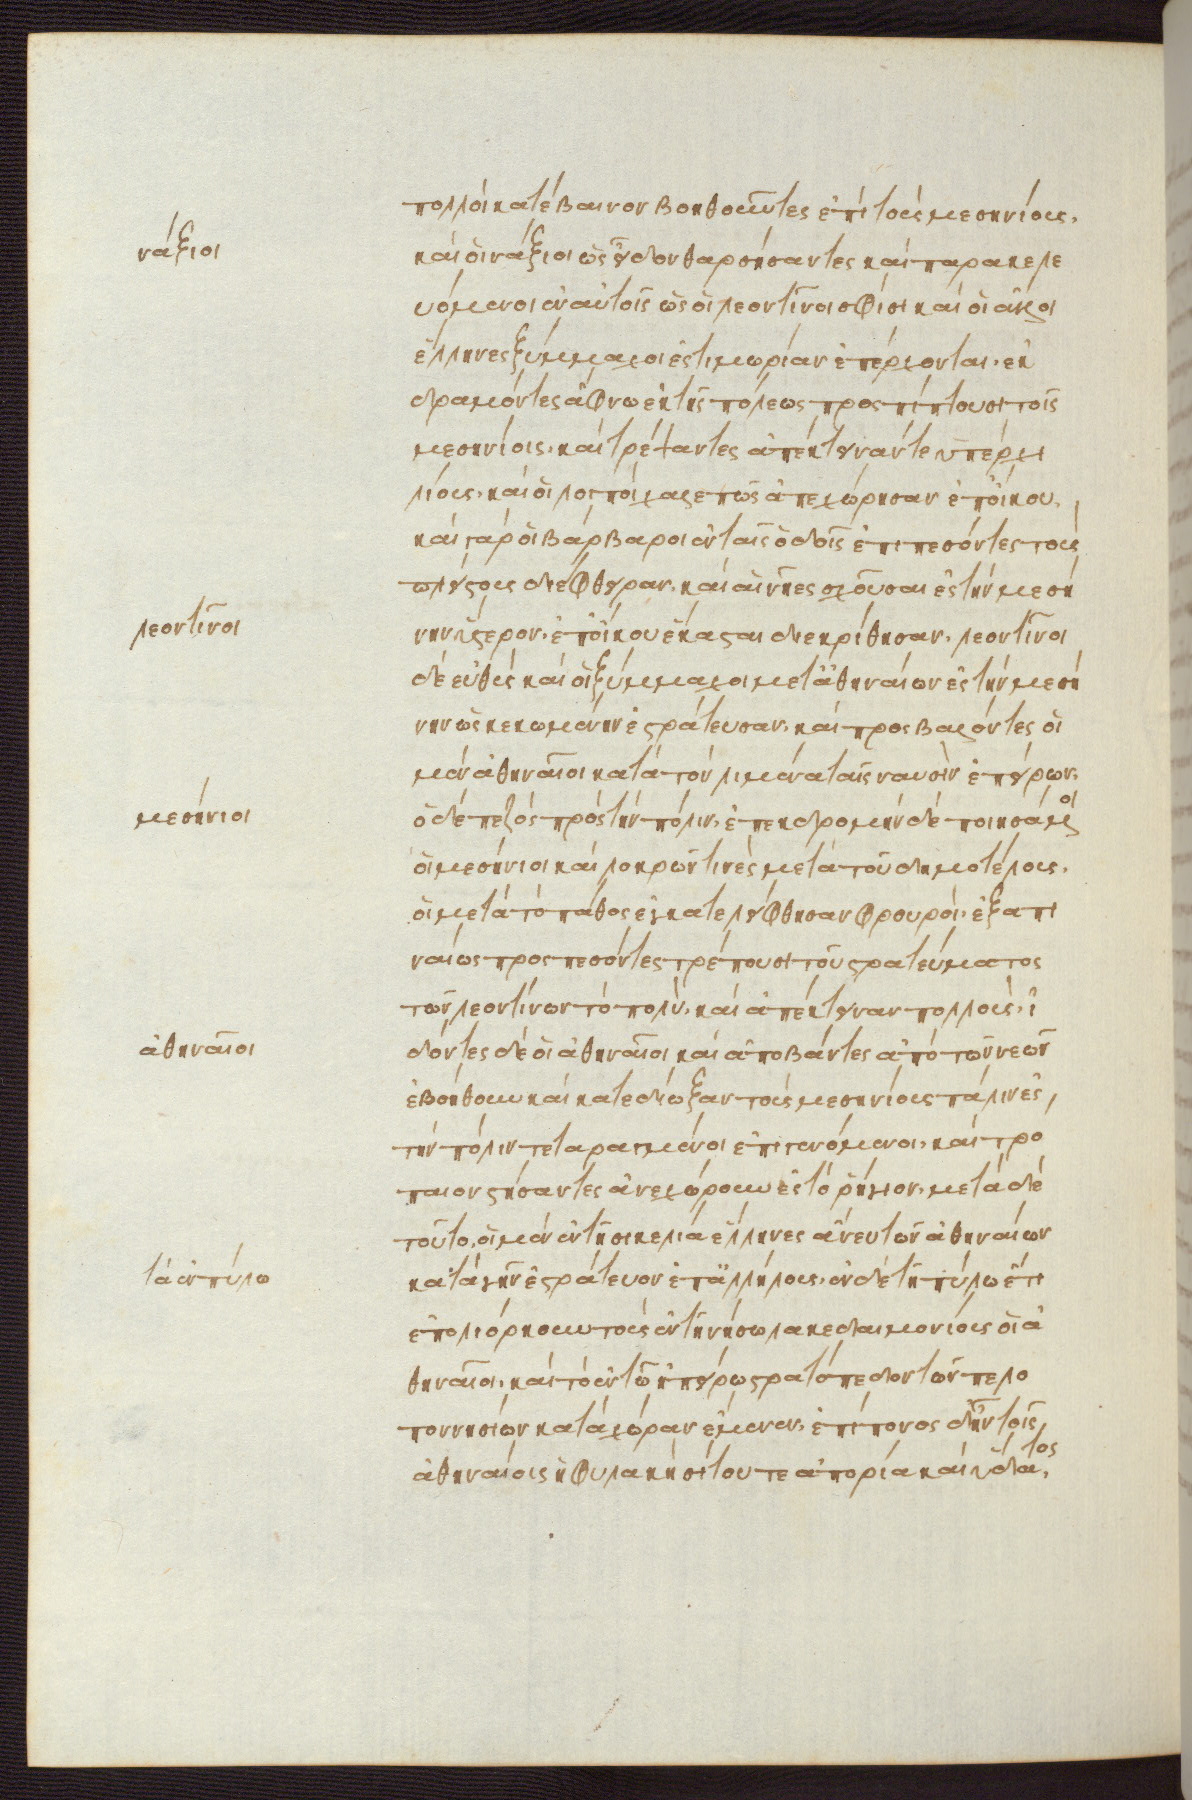 πολλοὶ κατέβαινον βοηθοῦντες ἐπὶ τοὺς μεσηνίους.
νάξιοι
καὶ οἱ νάξιοι ὡς εἶδον θαρσήσαντες καὶ παρακελε
υόμενοι ἐν αὑτοῖς ὡς οἱ λεοντῖνοι σφίσι καὶ οἱ ἄλλοι
ἕλληνες ξύμμαχοι ἐς τιμωρίαν ἐπέρχονται, ἐκ
δραμόντες ἄφνω ἐκ τῆς πόλεως προσπίπτουσι τοῖς
μεσηνίοις, καὶ τρέψαντες ἀπέκτεινάν τε ὑπὲρ χι
λίους, καὶ οἱ λοιποὶ χαλεπῶς ἀπεχώρησαν ἐπ' οἴκου,
καὶ γὰρ οἱ βάρβαροι ἐν ταῖς ὁδοῖς ἐπιπεσόντες τοὺς
πλείστους διέφθειραν. καὶ αἱ νῆες σχοῦσαι ἐς τὴν μεσή
λεοντῖνοι
νην ὕστερον, ἐπ' οἴκου ἕκασται διεκρίθησαν. λεοντῖνοι
δὲ εὐθὺς καὶ οἱ ξύμμαχοι μετ' ἀθηναίων ἐς τὴν μεσή
νην ὡς κεκωμένην ἐστράτευσαν, καὶ προσβαλόντες οἱ
μὲν ἀθηναῖοι κατὰ τὸν λιμένα ταῖς ναυσὶν ἐπείρων,
μεσήνιοι
ὁ δὲ πεζὸς πρὸς τὴν πόλιν. ἐπεκδρομὴν δὲ ποιησάμενοι
οἱ μεσήνιοι καὶ λοκρῶν τινὲς μετὰ τοῦ δημοτέλους,
οἳ μετὰ τὸ πάθος ἐγκατελείφθησαν φρουροὶ, ἐξαπι
ναίως προσπεσόντες τρέπουσι τοῦ στρατεύματος
τῶν λεοντίνων τὸ πολὺ, καὶ ἀπέκτειναν πολλούς. ἰ
ἀθηναῖοι
δόντες δὲ οἱ ἀθηναῖοι καὶ ἀποβάντες ἀπὸ τῶν νεῶν
ἐβοήθουν καὶ κατεδίωξαν τοὺς μεσηνίους πάλιν ἐς
τὴν πόλιν τεταραγμένοις ἐπιγενόμενοι, καὶ τρο
παῖον στήσαντες ἀνεχώρουν ἐς τὸ ῥήγιον. μετὰ δὲ
τοῦτο, οἱ μὲν ἐν τῇ σικελία ἕλληνες ἄνευ τῶν ἀθηναίων
τὰ ἐν πύλω
κατὰ γῆν ἐστράτευον ἐπ' ἀλλήλους. ἐν δὲ τῇ πύλω ἔτι
ἐπολιόρκουν τοὺς ἐν τῇ νήσω λακεδαιμονίους οἱ ἀ
θηναῖοι, καὶ τὸ ἐν τῶ ἠπείρω στρατόπεδον τῶν πελο
ποννησίων κατὰ χώραν ἔμενεν. ἐπίπονος δ' ἦν τοῖς
ἀθηναίοις ἡ φυλακὴ σίτου τε ἀπορία καὶ ὕδατος,